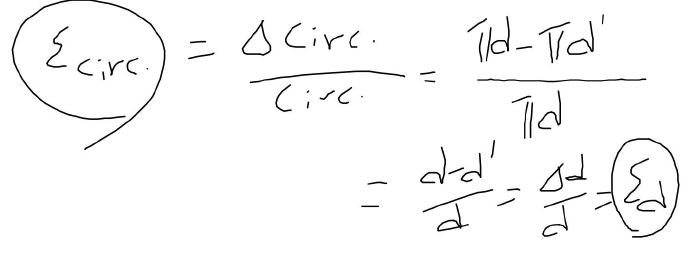 Ɛcirc. = Δ Circ. / Circ. = πd - πd' / πd
= d-d' / d = Δd / d = Ɛd